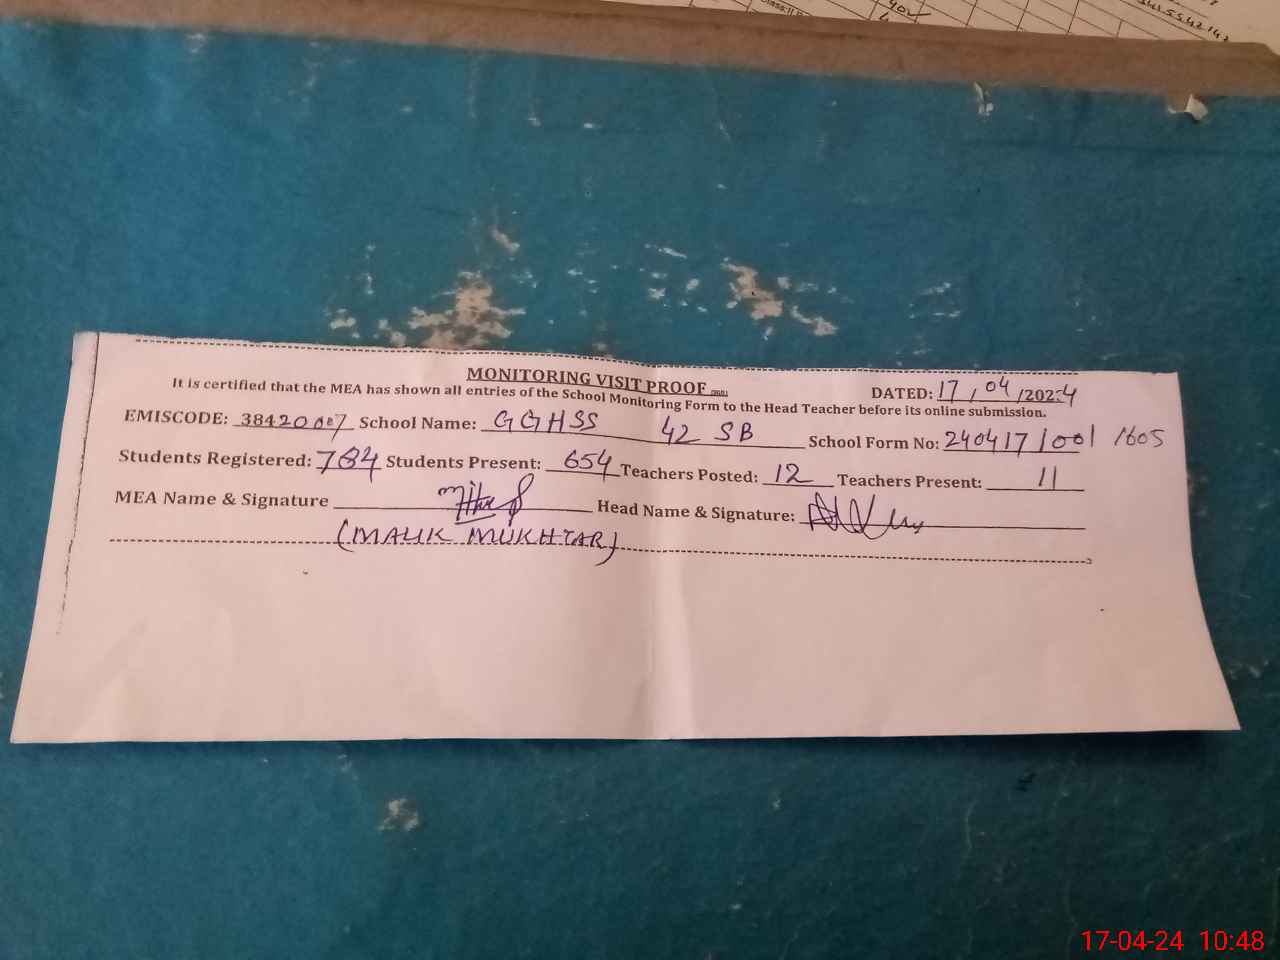 MONITORING VISIT PROOF
DATED: 17/04/2024
It is certified that the MEA has shown all entries of the School Monitoring Form to the Head Teacher before its online submission.
EMISCODE: 38420007 School Name: GGHSS 42 SB School Form No: 240417/001/1605
Students Registered: 784 Students Present: 654 Teachers Posted: 12 Teachers Present: 11
MEA Name & Signature Head Name & Signature:
(MALIK MUKHTAR)
17-04-24 10:48